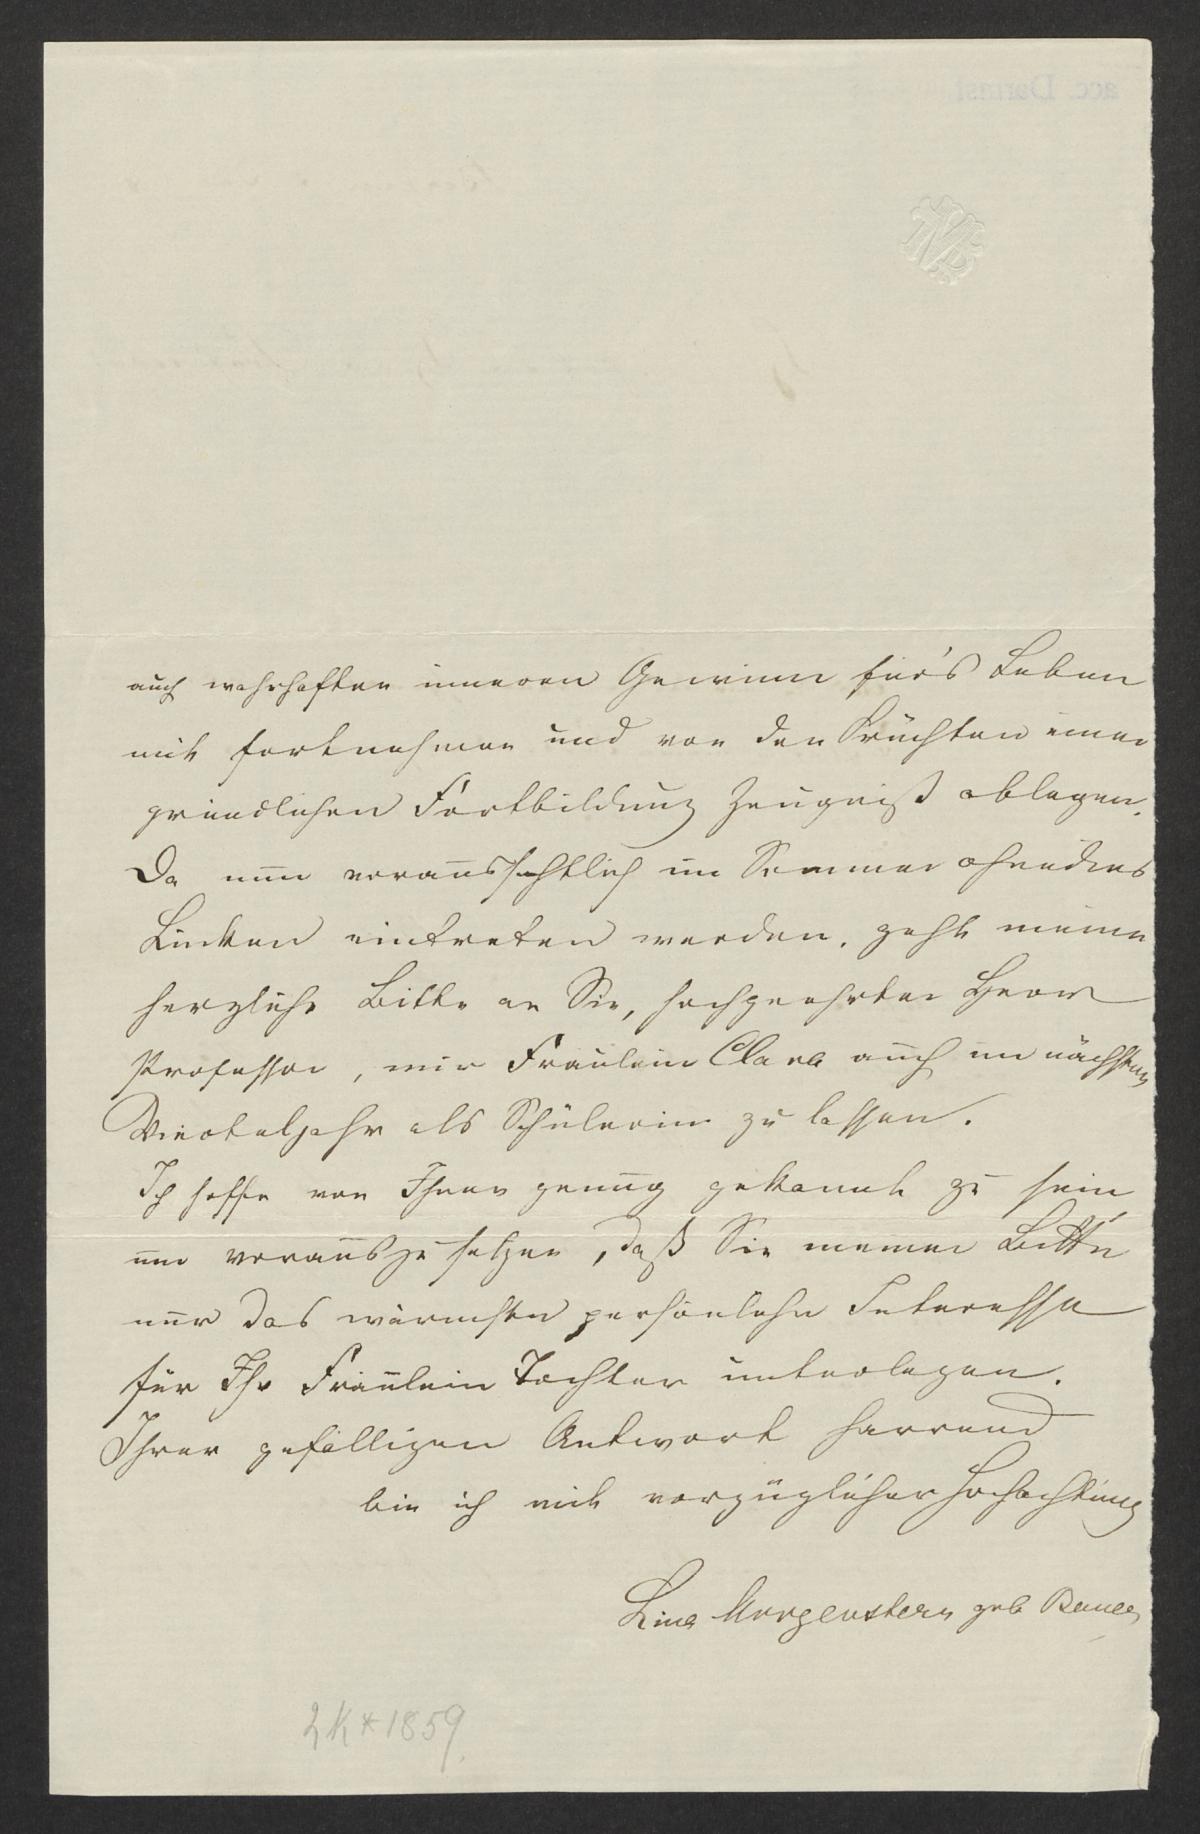 auch wahrhaften inneren Gewinn für's Leben
mit fortnehmen und von den Früchten einer
gründlichen Fortbildung Zeugniß ablegen.
Da nun voraussichtlich im Sommer ohnedies
Lücken eintreten werden, geht meine
herzliche Bitte an Sie, hochgeehrter Herr
Professor, mir Fräulein Clara auch im nächsten
Vierteljahr als Schülerin zu lassen.
Ich hoffe von Ihnen genug gekannt zu sein
um vorauszusetzen, daß Sie meiner Bitte
nur das wärmste persönliche Interesse
für Ihr Fräulein Tochter unterlegen.
Ihrer gefälligen Antwort harrend
bin ich mit vorzüglicher Hochachtung
Lina Morgenstern geb Bauer
2k*1859